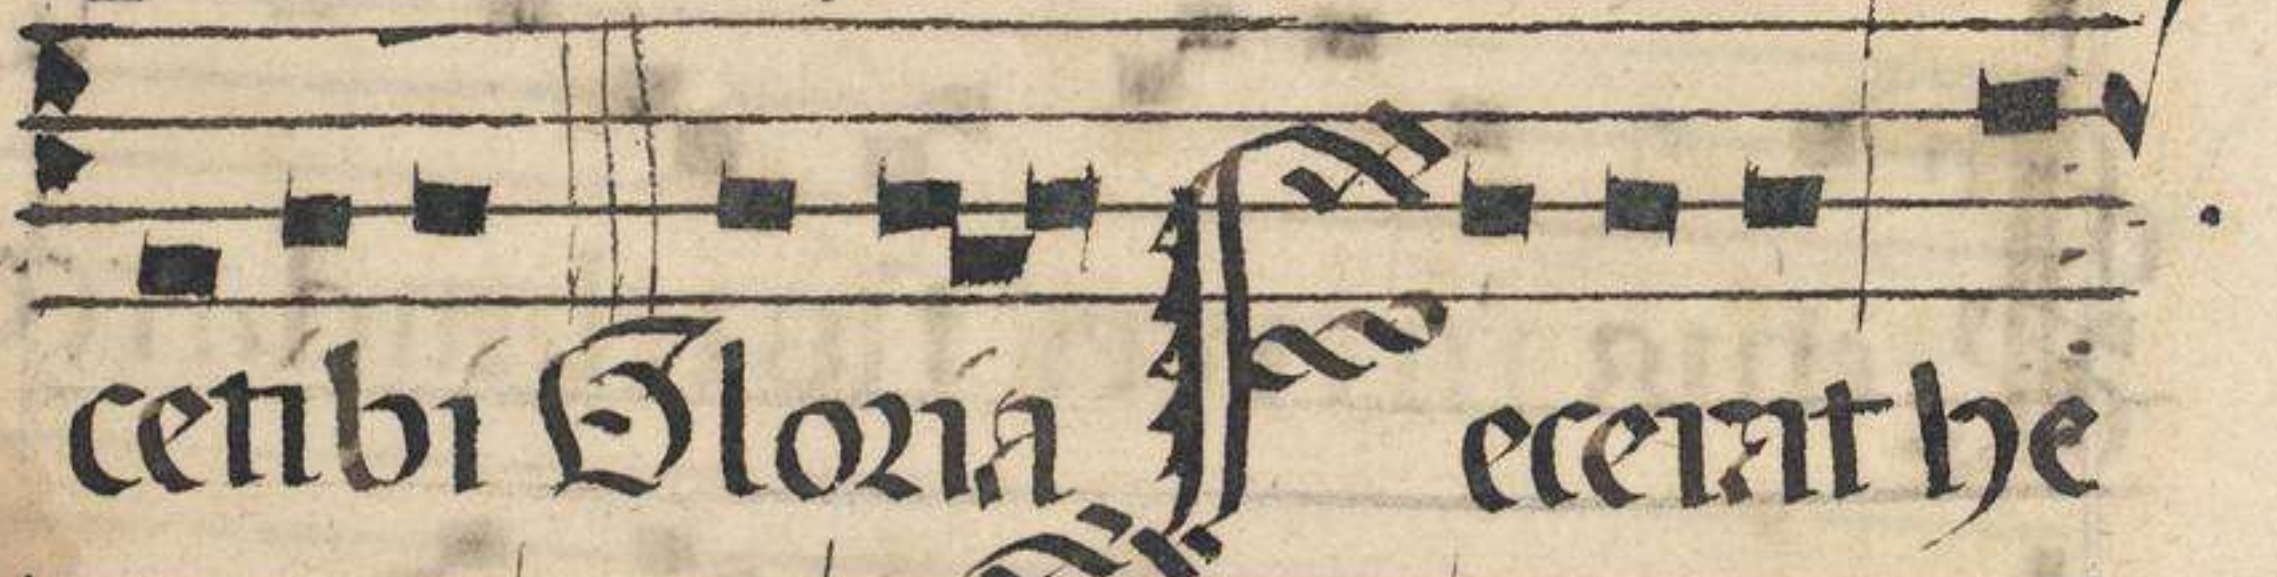 cetibi Gloria Fecerat he